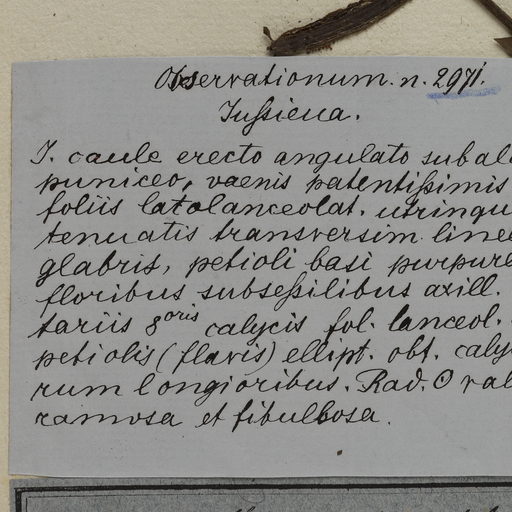 Observationum. n. 2971.
Jussieua.
J. caule erecto angulato subal
puniceo, vaenis patentissimis
foliis latolanceolat. utrinqu
tenuatis transversim linee
glabris, petioli basi purpure
floribus subsessilibus axill.
tariis 8oris calycis fol. lanceol.
petiolis (flavis) ellipt. obt. caly
rum longioribus. Rad. O val
ramosa et fibulbosa.